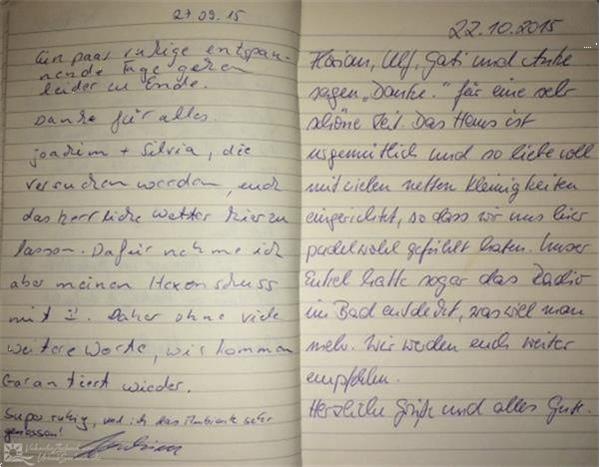 27.09.15
Ein paar ruhige entspan-
nende Tage gehen
leider zu Ende.
Danke für alles.
Joachim + Silvia, die
versuchen werden, euch
das herrliche Wetter hier zu
lassen. Dafür nehme ich
aber meinen Hexenschuss
mit :). Daher ohne viele
weitere Worte, wir kommen
Garantiert wieder.
Super ruhig, und ich das Ambiente sehr
genossen!
22.10.2015
Florian, Ulf, Gabi und Anke
sagen „Danke." für eine sehr
schöne Zeit. Das Haus ist
urgemütlich und so liebevoll
mit vielen netten Kleinigkeiten
eingerichtet, so dass wir uns hier
pudelwohl gefühlt haben. Unser
Enkel hatte sogar das Radio
im Bad entdeckt, was will man
mehr. Wir werden euch weiter
empfehlen.
Herzliche Grüße und alles Gute.